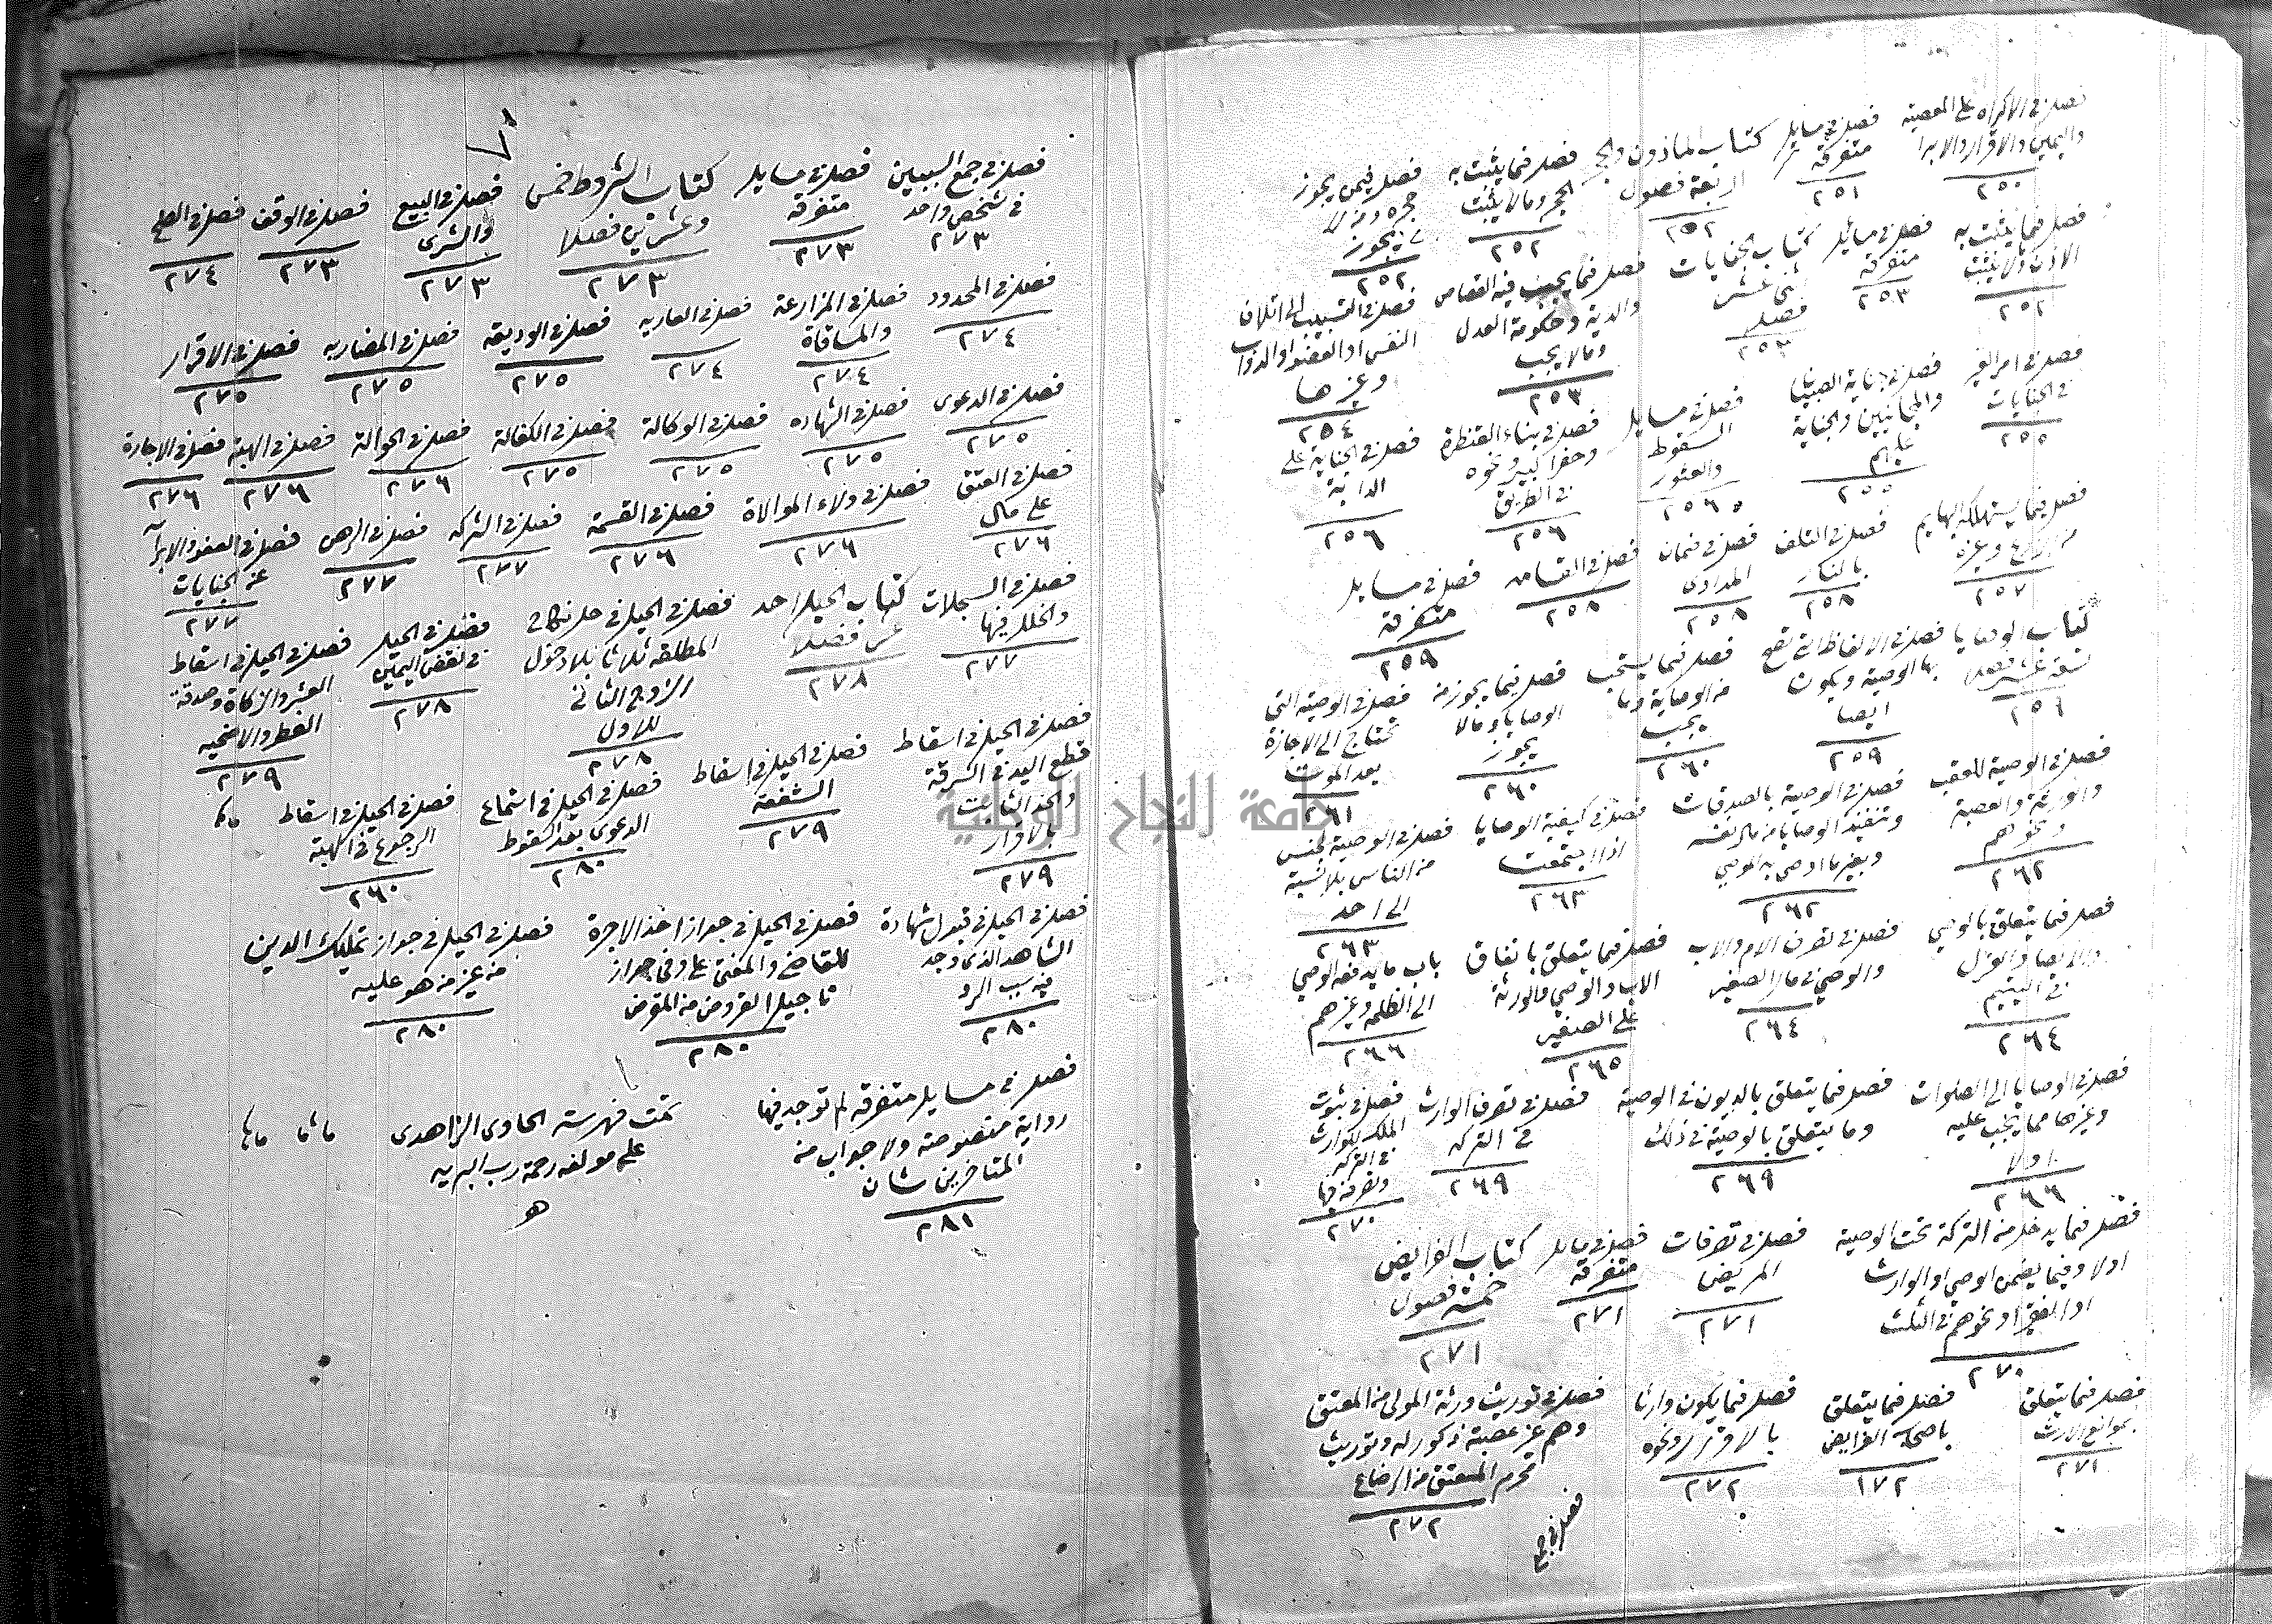 فصل في الاكراه على المعصية فصل في مسايل كتاب الماذون والحجر فصل فيما يثبت به فصل فيمن يجوز
واليمين والاقرار والابرا متفرقة اربعة فصول الحجر ومالا يثبت حجره ومن لا
يجوز
٢٥٠ ٢٥١ ٢٥٢ ٢٥٢ ٢٥٢
فصل فيما يثبت به فصل في مسائل كتاب الجنايات فصل فيما يجب فيه القصاص فصل في التسبيب الى اتلاف
الاذن ولا يثبت متفرقة اثنى عشر والدية وحكومة العدل النفس او العضو او الدواب
فصلا ومالا يجب وغيرها
٢٥٢ ٢٥٣ ٢٥٣ ٢٥٣ ٢٥٤
فصل في امر الغير فصل في جناية الصبيان فصل في مسايل فصل في بناء القنطرة فصل في الجناية على
في الجنايات والمجانين والجناية السقوط وحفر البير ونحوه الدابة
عليهم والعثور في الطريق
٢٥٥ ٢٥٥ ٢٥٦ ٢٥٦ ٢٥٦
فصل فيما يستهلكه البهايم فصل في التلف فصل في ضمان فصل في القسامه فصل في مسايل
من الزرع وغيره بالنار المداوى متفرقة
٢٥٧ ٢٥٨ ٢٥٨ ٢٥٨ ٢٥٩
كتاب الوصايا فصل في الالفاظ التي تقع فصل فيما يستحب فصل فيما يجوز من فصل في الوصية التي
تسعة عشر فصلا بها الوصية ويكون من الوصاية وما الوصايا ومالا تحتاج الى الاجازة
ايصا يجب يجوز بعد الموت
٢٥٩ ٢٥٩ ٢٦٠ ٢٦٠ ٢٦١
جامعة النجاح الوطنية
فصل في الوصية للعقب فصل في الوصية بالصدقات فصل في كيفية الوصايا فصل في الوصية لجنس
والورثة والعصبة وتنفيذ الوصايا من مال نفسه اذا اجتمعت من الناس بلا نسبة
ونحوهم وبغير ما اوصى به الموصي الى احد
٢٦٢ ٢٦٢ ٢٦٣ ٢٦٣
فصل فيما يتعلق بالوصي فصل في تصرف الام والاب فصل فيما يتعلق بانفاق باب ما يدفعه الوصي
والايصا والعزل والوصي في مال الصغير الاب والوصي والورثة الى الظلمه وغيرهم
في اليتيم على الصغير
٢٦٤ ٢٦٤ ٢٦٥ ٢٦٦
فصل في الوصايا الى الصلوات فصل فيما يتعلق بالديون في الوصية فصل في تصرف الوارث فصل في ثبوت
وغيرها مما يجب عليه وما يتعلق بالوصية في ذلك في التركه الملك للوارث
اولا في التركه
وتصرفه فيها
٢٦٦ ٢٦٩ ٢٦٩ ٢٧٠
فصل فيما يدخل من التركة تحت الوصية فصل في تصرفات فصل في مسايل كتاب الفرايض
اولا وفيما يضمن الوصي او الوارث المريض متفرقة خمسة فصول
او الفقير او نحوهم في الثلث
٢٧٠ ٢٧١ ٢٧١ ٢٧١
فصل فيما يتعلق فصل فيما يتعلق فصل فيما يكون وارثا فصل في توريث ورثة المولى من المعتق
بموانع الارث باصحاب الفرايض بالاقرار ونحوه وهم غير عصبة ذكور له وتوريث
محرم المعتق من الرضاع
٢٧١ ٢٧٢ ٢٧٢ ٢٧٢
فصل في جمع
٧
فصل في جمع السببين فصل في مسايل كتاب الشروط خمس فصل في البيع فصل في الوقف فصل في الصلح
في شخص واحد متفرقه وعشرين فصلا والشرى
٢٧٣ ٢٧٣ ٢٧٣ ٢٧٣ ٢٧٣ ٢٧٤
فصل في المحدود فصل في المزارعة فصل في العاريه فصل في الوديعة فصل في المضاربه فصل في الاقرار
والمساقاة
٢٧٤ ٢٧٤ ٢٧٤ ٢٧٥ ٢٧٥ ٢٧٥
فصل في الدعوى فصل في الشهاده فصل في الوكالة فصل في الكفالة فصل في الحوالة فصل في الهبة فصل في الاجارة
٢٧٥ ٢٧٥ ٢٧٥ ٢٧٥ ٢٧٦ ٢٧٦ ٢٧٦
فصل في العتق فصل في ولاء الموالاة فصل في القسمة فصل في الشركه فصل في الرهن فصل في العفو والابرآء
على مال عن الجنايات
٢٧٦ ٢٧٦ ٢٧٦ ٢٧٧ ٢٧٧ ٢٧٧
فصل في السجلات كتاب الحيل احد فصل في الحيل في حل نكاح فصل في الحيل فصل في الحيل في اسقاط
والخلل فيها عشر فصلا المطلقه ثلاثا بلا دخول في نقض اليمين العشر والزكاة وصدقة
الزوج الثاني الفطر والاضحيه
للاول
٢٧٧ ٢٧٨ ٢٧٨ ٢٧٨ ٢٧٩
فصل في الحيل في اسقاط فصل في الحيل في اسقاط فصل في الحيل في استماع فصل في الحيل في اسقاط
قطع اليد في السرقة الشفعة الدعوى بعد السقوط الرجوع في الهبة
والحد الثابت
بالاقرار
٢٧٩ ٢٧٩ ٢٨٠ ٢٦٠
فصل في الحيل في قبول شهادة فصل في الحيل في جواز اخذ الاجرة فصل في الحيل في جواز تمليك الدين
الشاهد الذي وجد للقاضي والمفتي على وفى جواز من غير من هو عليه
فيه سبب الرد تاجيل القروض من المقرض
٢٨٠ ٢٨٠ ٢٨٠
فصل في مسايل متفرقه لم توجد فيها تمت فهرسته الحاوى الزاهدى
رواية منصوصة ولا جواب من على مولفه رحمة رب البريه
المتاخرين شان
٢٨١